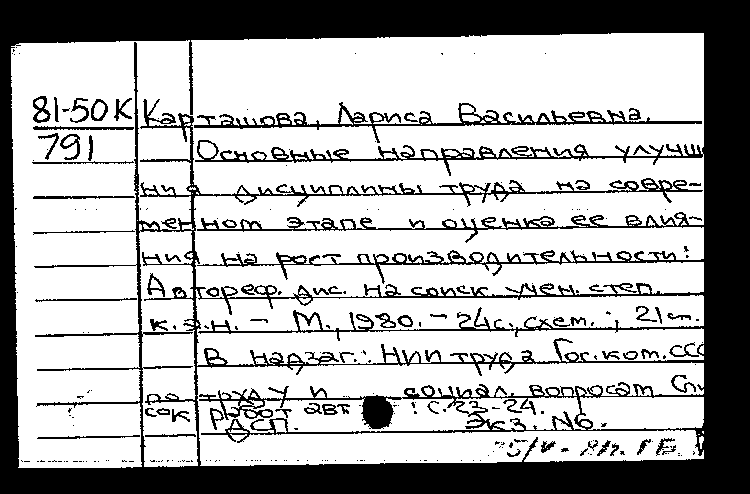 81-50К Карташова, Лариса Васильевна.
791 Основные направления улучше
ния дисциплины труда на совре-
менном этапе и оценка ее влия-
ния на рост производительности:
Автореф. дис. на соиск. учен. степ.
к.э.н. - М., 1980. - 24с., схем.; 21 см.
В надзаг.: НИИ труда Гос. ком. ССС
по труду и социал. вопросам. Спи
сок работ авт.: с. 23-24.
ДСП. Экз. №6.